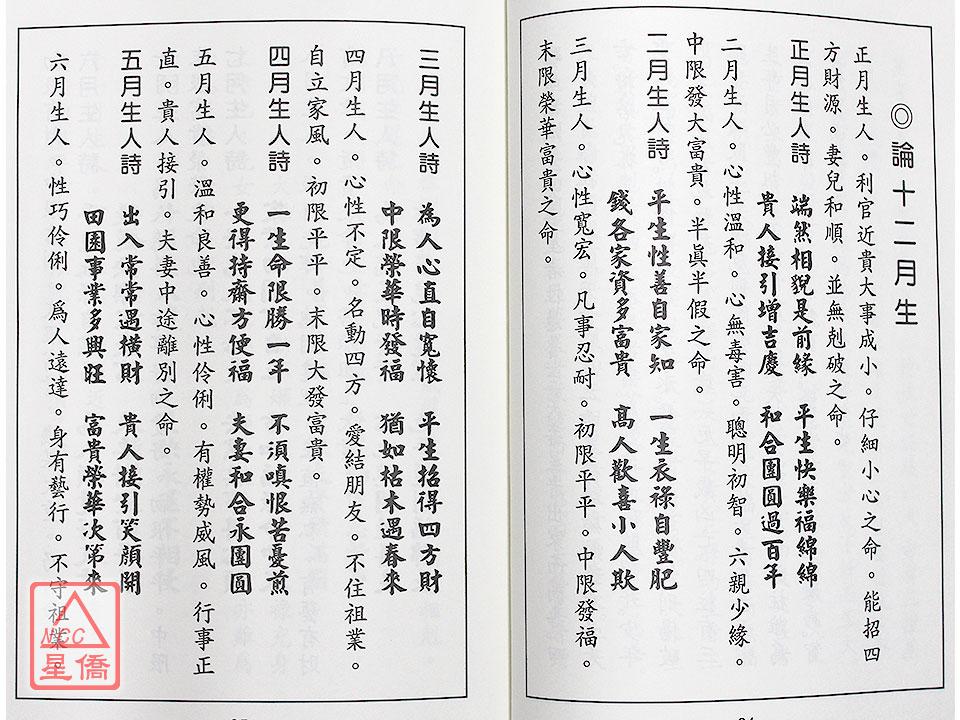 ◎論十二月生
正月生人。利官近貴大事成小。仔細小心之命。能招四
方財源。妻兒和順。並無剋破之命。
正月生人詩　端然相猊是前緣　平生快樂福綿綿
貴人接引增吉慶　和合團圓過百年
二月生人。心性溫和。心無毒害。聰明初智。六親少緣。
中限發大富貴。半眞半假之命。
一月生人詩　平生性善自家知　一生衣祿自豐肥
錢各家資多富貴　高人歡喜小人欺
三月生人。心性寬宏。凡事忍耐。初限平平。中限發福。
末限榮華富貴之命。
三月生人詩　為人心直自寬懷　平生招得四方財
中限榮華時發福　猶如枯木遇春來
四月生人。心性不定。名動四方。愛結朋友。不住祖業。
自立家風。初限平平。末限大發富貴。
四月生人詩　一生命限勝一年　不須嗔恨苦憂煎
更得持齋方便福　夫妻和合永團圓
五月生人。溫和良善。心性伶俐。有權勢威風。行事正
直。貴人接引。夫妻中途離別之命。
五月生人詩　出入常常遇橫財　貴人接引笑顏開
田園事業多興旺　富貴榮華次第來
六月生人。性巧伶俐。爲人遠達。身有藝行。不守祖業。
NCC
星僑